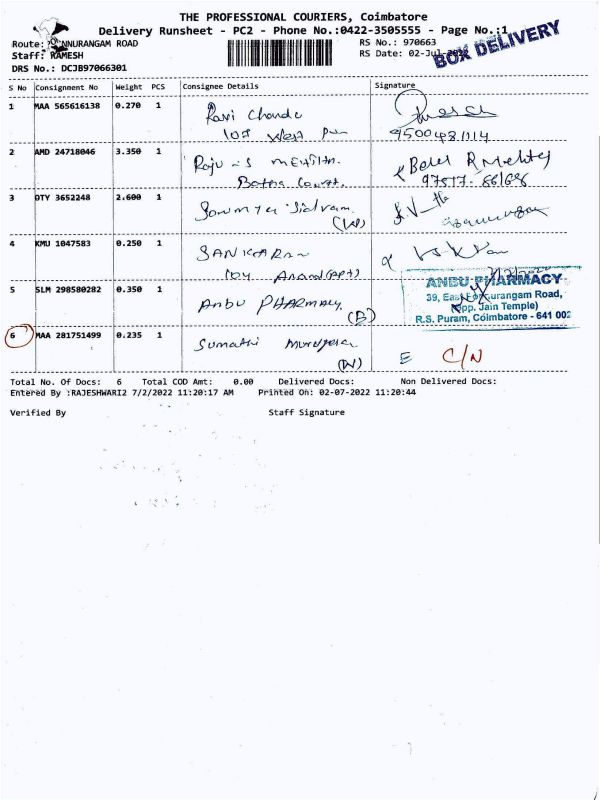 THE PROFESSIONAL COURIERS, Coimbatore
Delivery Runsheet - PC2 - Phone No.:0422-3505555 - Page No.:1
Route: NNURANGAM ROAD
RS No.: 970663
BOX DELIVERY
Staff: RAMESH
RS Date: 02-Jul-2022
DRS No.: DCJB97066301
S No Consignment No Weight PCS Consignee Details Signature
1 MAA 565616138 0.270 1 Ravi
West
2 AMD 24718046 3.350 1 Raju
R Mehta
3 OTY 3652248 2.600 1
(W)
4 KMU 1047583 0.250 1 SANKARAN
104 Anand (APT)
5 SLM 298580282 0.350 1 Anbu PHARMACY
(B)
ANBU PHARMACY
39, East Road,
(Opp. Jain Temple)
R.S. Puram, Coimbatore - 641 002
6 MAA 281751499 0.235 1 Sumathi
(W) E C/N
Total No. Of Docs: 6 Total COD Amt: 0.00 Delivered Docs: Non Delivered Docs:
Entered By :RAJESHWARI2 7/2/2022 11:20:17 AM Printed On: 02-07-2022 11:20:44
Verified By Staff Signature